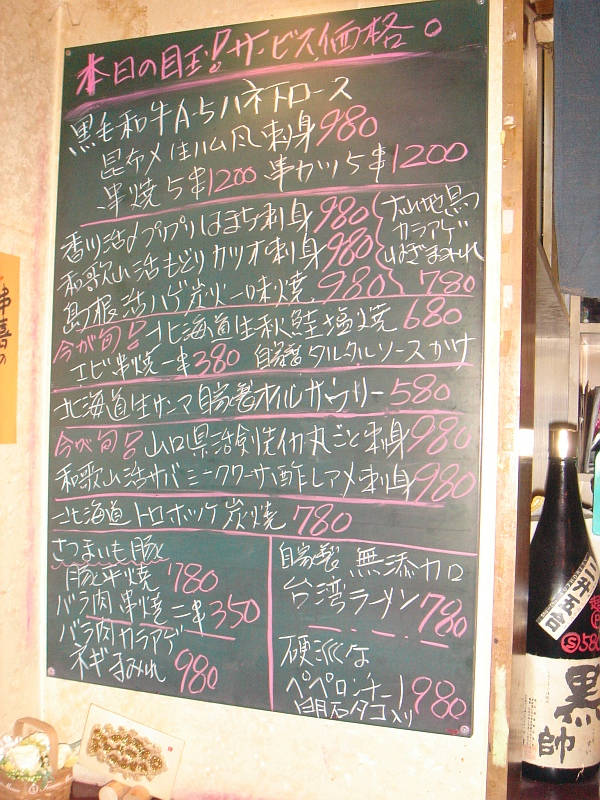 本日の目玉!サービス価格。
黒毛和牛A5ハネ下ロース
昆布〆生ハム風刺身980
串焼5串1200 串カツ5串1200
香川活〆プリプリはまち刺身980
和歌山活もどりカツオ刺身980
島根活ハゲ炭火一味焼980
カラアゲ
ねぎまみれ
780
今が旬!北海道生秋鮭塩焼680
エビ串焼一串380 自家製タルタルソースがけ
北海道生サンマ自家製オイルサーリー580
今が旬!山口県活剣先イカ丸ごと刺身980
和歌山活サバシークワーサー酢〆刺身980
北海道トロホッケ炭焼780
さつまいも豚と
豚と平焼780
バラ肉串焼二串350
バラ肉カラアゲ
ネギまみれ980
自家製 無添加
台湾ラーメン780
硬派な
ペペロンチーノ980
明石タコ入り
二合五合
580
黒
帥
串喜の